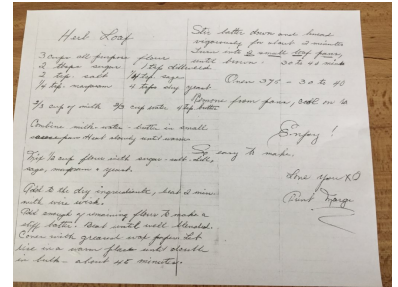 Herb Loaf
3 cups all purpose flour
2 tbsps sugar 1 tsp dillweed
2 tsp. salt 1/4 tsp. sage
1/4 tsp. marjoram 4 tsps dry yeast
2/3 cup of milk 2/3 cup water 4 tsp butter
Combine milk - water - butter in small
pan. Heat slowly until warm
Mix 1/2 cup flour with sugar - salt - dill,
sage, marjoram & yeast.
Add to the dry ingredients, beat 2 min
with wire whisk.
Add enough of remaining flour to make a
stiff batter. Beat until well blended.
Cover with greased wax paper. Let
rise in a warm place until double
in bulk - about 45 minutes.
Stir batter down and knead
vigorously for about 2 minutes
Turn into 2 small loaf pans,
until brown. 30 to 40 mins
Oven 375 - 30 to 40
Remove from pans, cool on
Enjoy!
So easy to make.
Love you XO
Aunt Marge